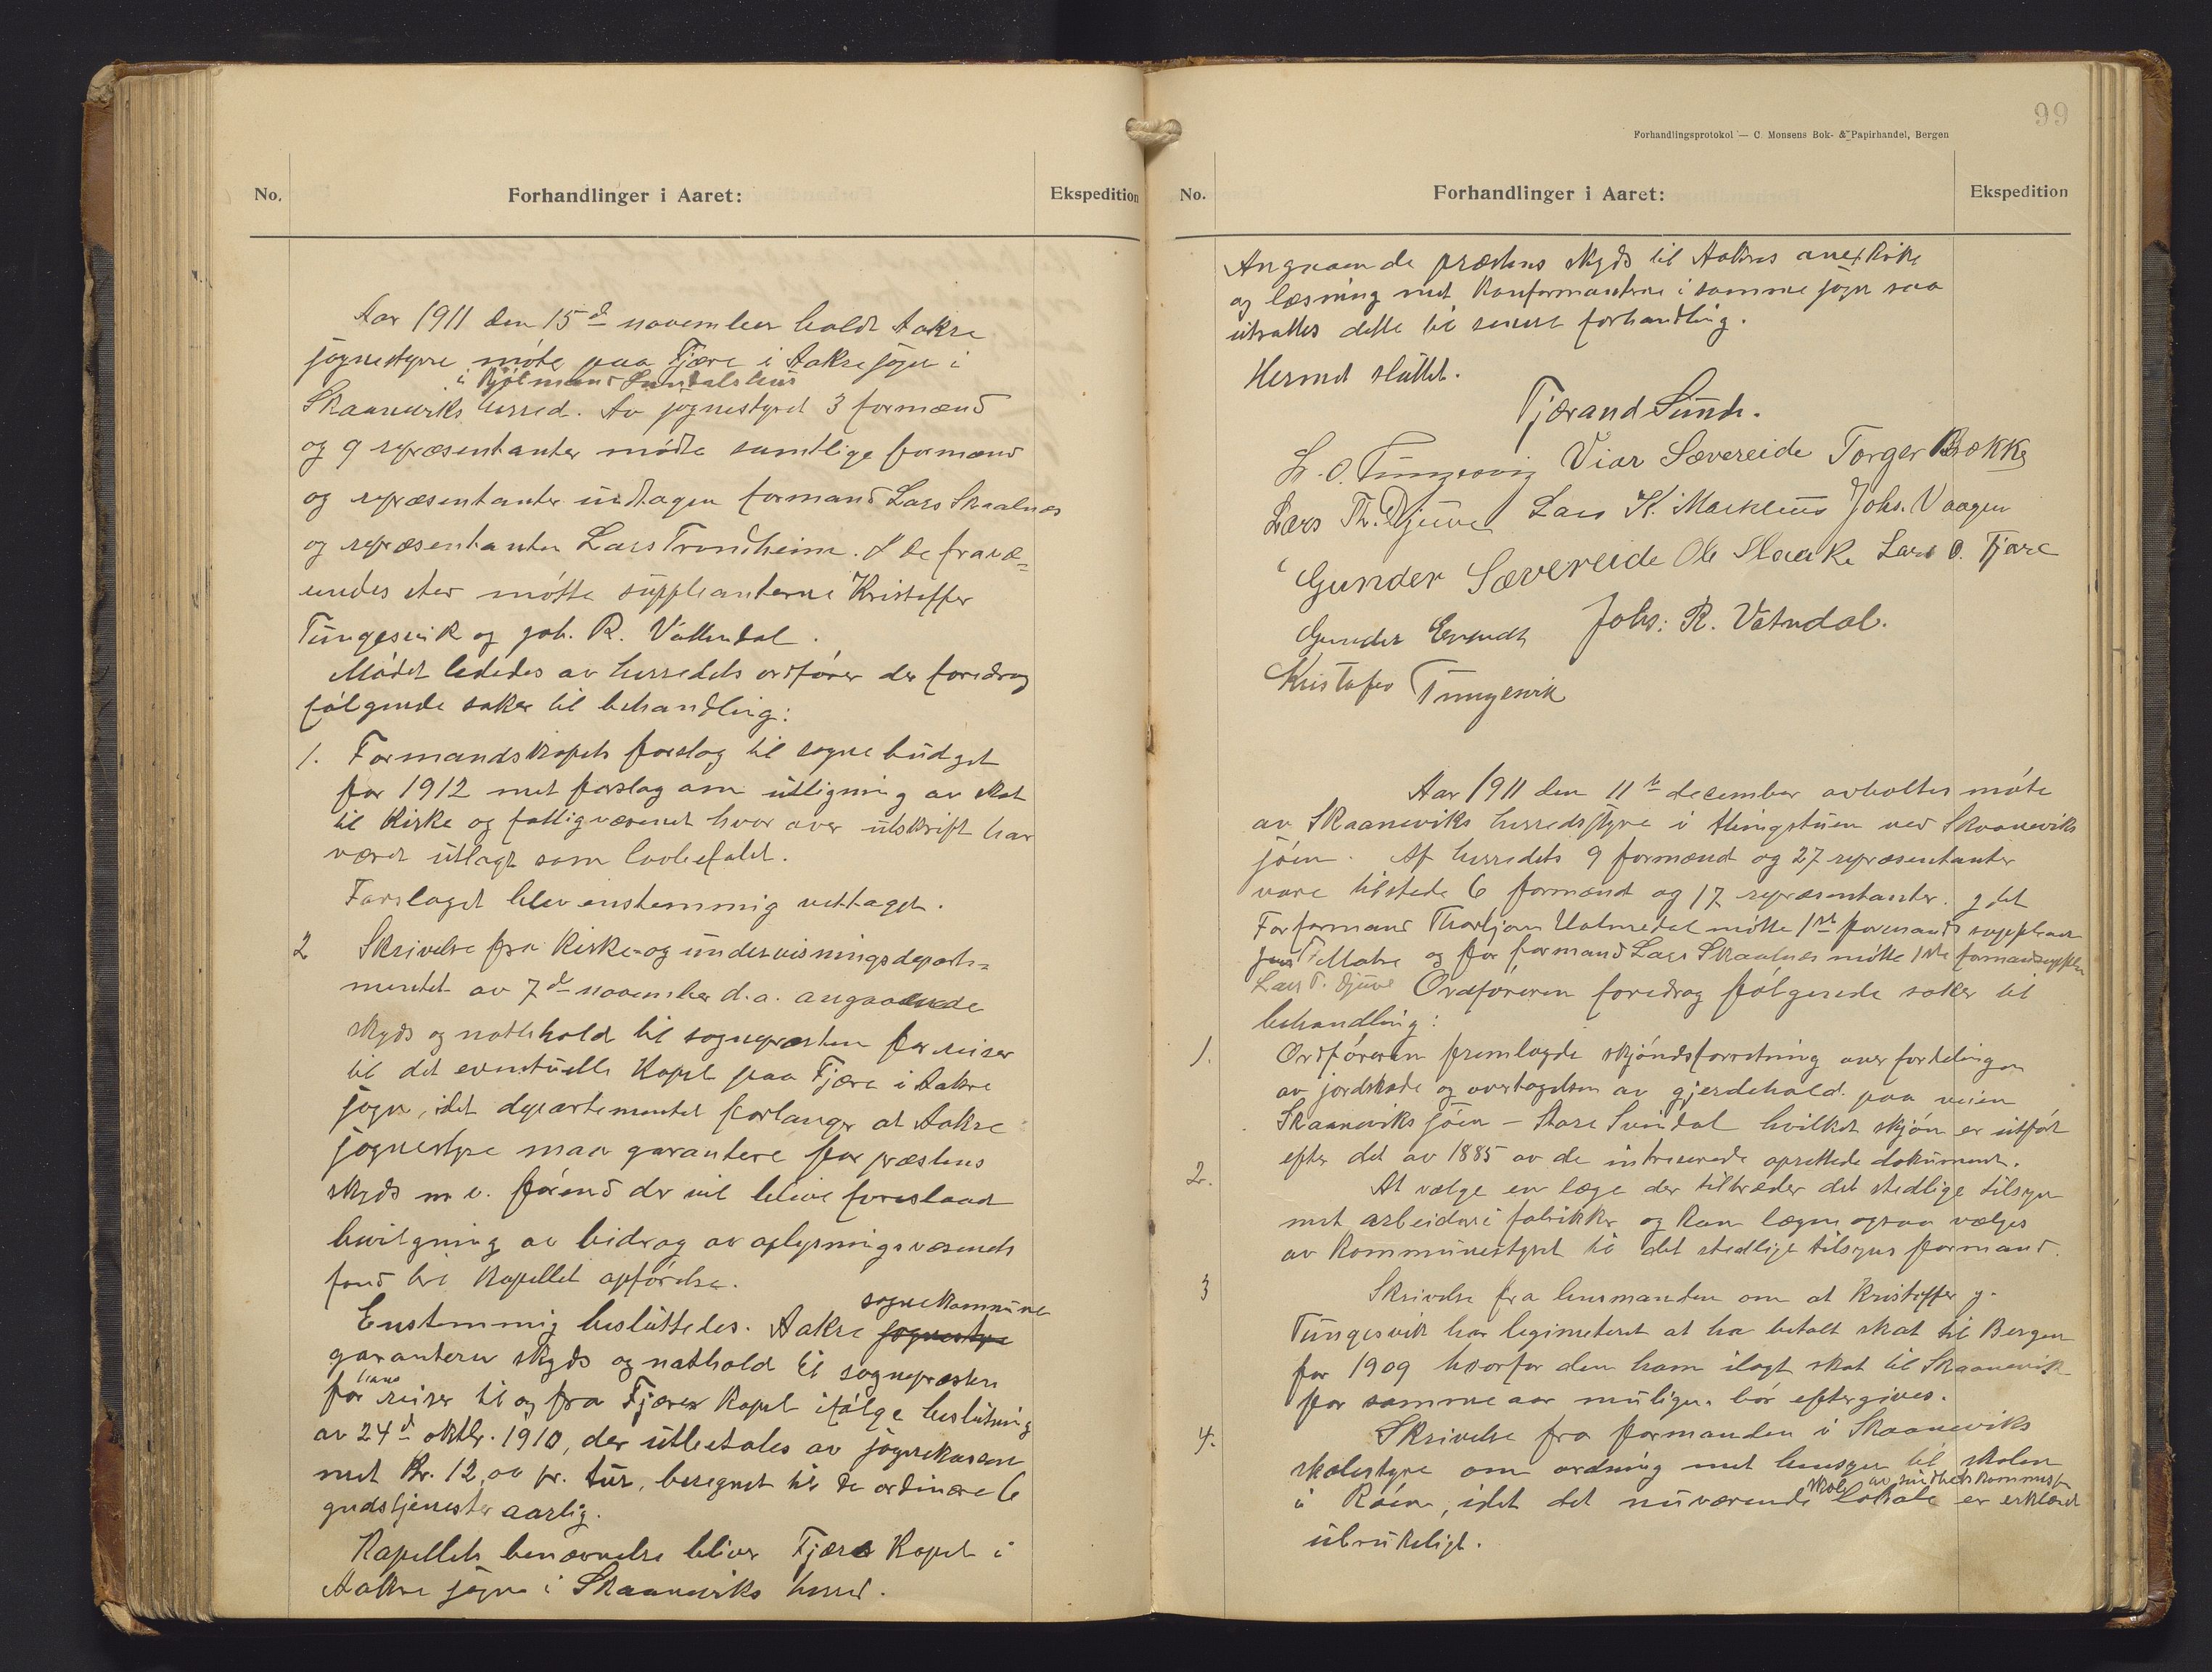 No.
Forhandlinger i Aaret:
Ekspedition
Aar 1911 den 15de november holdt Aakre
sognestyre møte paa Fjære i Aakre sogn i
i Kjøbmand Sundals hus
Skaaneviks herred. Av sognestyret 3 formænd
og 9 repræsentanter mødte samtlige formænd
og repræsentanter undtagen formand Lars Skaalnes
og repræsentanten Lars Trondheim. I de fravæ-
rendes sted møtte suppleanterne Kristoffer
Tungesvik og Joh. R. Vattendal.
Mødet lededes av herredets ordfører der foredrog
følgende saker til behandling:
1. Formandskapets forslag til sognebudget
for 1912 med forslag om utligning av skat
til Kirke og fattigvæsenet hvor over utskrift har
været utlagt som lovbefalet.
Forslaget blev enstemmig vedtaget.
2 Skrivelse fra Kirke- og undervisningsdeparte-
mentet av 7de november d.a. angaaende
skyds og natthold til sognepresten for reiser
til det eventuelle Kapel paa Fjære i Aakre
sogn, idet departementet forlanger at Aakre
sognestyre maa garantere for præstens
skyds m. v. førend der vil blive foreslaat
bevilgning av bidrag av oplysningsvæsenets
fond til Kapellet opførelse.
Enstemmig besluttedes. Aakre sognestyre
sognekommune
garanterer skyds og nathold til sognepresten
for hans reiser til og fra Fjære Kapel ifølge beslutning
av 24de oktbr. 1910, der utbetales av sognekassen
med Kr. 12,00 pr. tur, beregnet til de ordinære 6
gudstjenester aarlig.
Kapellets benævnelse bliver Fjære Kapel i
Aakre sogn i Skaaneviks herred.
99
Forhandlingsprotokol — C. Monsens Bok- & Papirhandel, Bergen
No.
Forhandlinger i Aaret:
Ekspedition
Angaaende præstens skyds til Aakres anexkirke
og læsning med Konfirmanterne i samme sogn saa
utsattes dette til senere forhandling.
Hermed sluttet.
Tjærand Sunde.
L. O. Tungesvig Viar Sævereide Torger Bække
Lars Th. Djuve Lars K. Markhus Johs. Vaagen
Gunder Sævereide Ole Haake Lars O. Fjære
Gunder Johs: R. Vatndal.
Kristofer Tungesvik
Aar 1911 den 11te december avholtes møte
av Skaaneviks herredsstyre i thingstuen ved Skaaneviks
sjøen. Af herredets 9 formænd og 27 repræsentanter
vare tilstede 6 formænd og 17 repræsentanter. I det
For formand Thorbjørn Halmedal møtte 1ste formands supplean
Jens T. Matre og for formand Lars Skaalnes møtte 1ste formandsupplea
Lars T. Djuve Ordføreren foredrog følgende saker til
behandling:
1. Ordføreren fremlagde skjøndsforretning over fordelingen
av jordskade og overtagelsen av gjerdehold paa veien
Skaaneviksjøen – Store Svindal hvilket skjøn er utført
efter det av 1885 av de intreserede oprettede dokument.
2. At vælge en læge der tiltræder det stedlige tilsyn
met arbeidere i fabrikker og Kan lægen ogsaa vælges
av Kommunestyret til det stedlige tilsyns formand.
3 Skrivelse fra lensmanden om at Kristoffer J.
Tungesvik har legimeteret at ha betalt skat til Bergen
for 1909 hvorfor den ham ilagt skat til Skaanevik
for samme aar muligens bør eftergives.
4. Skrivelse fra formanden i Skaaneviks
skolestyre om ordning met hensyn til skolen
i Røen, idet det nuværende skole lokale av sundhetskommisj. er erklæret
ubrukeligt.